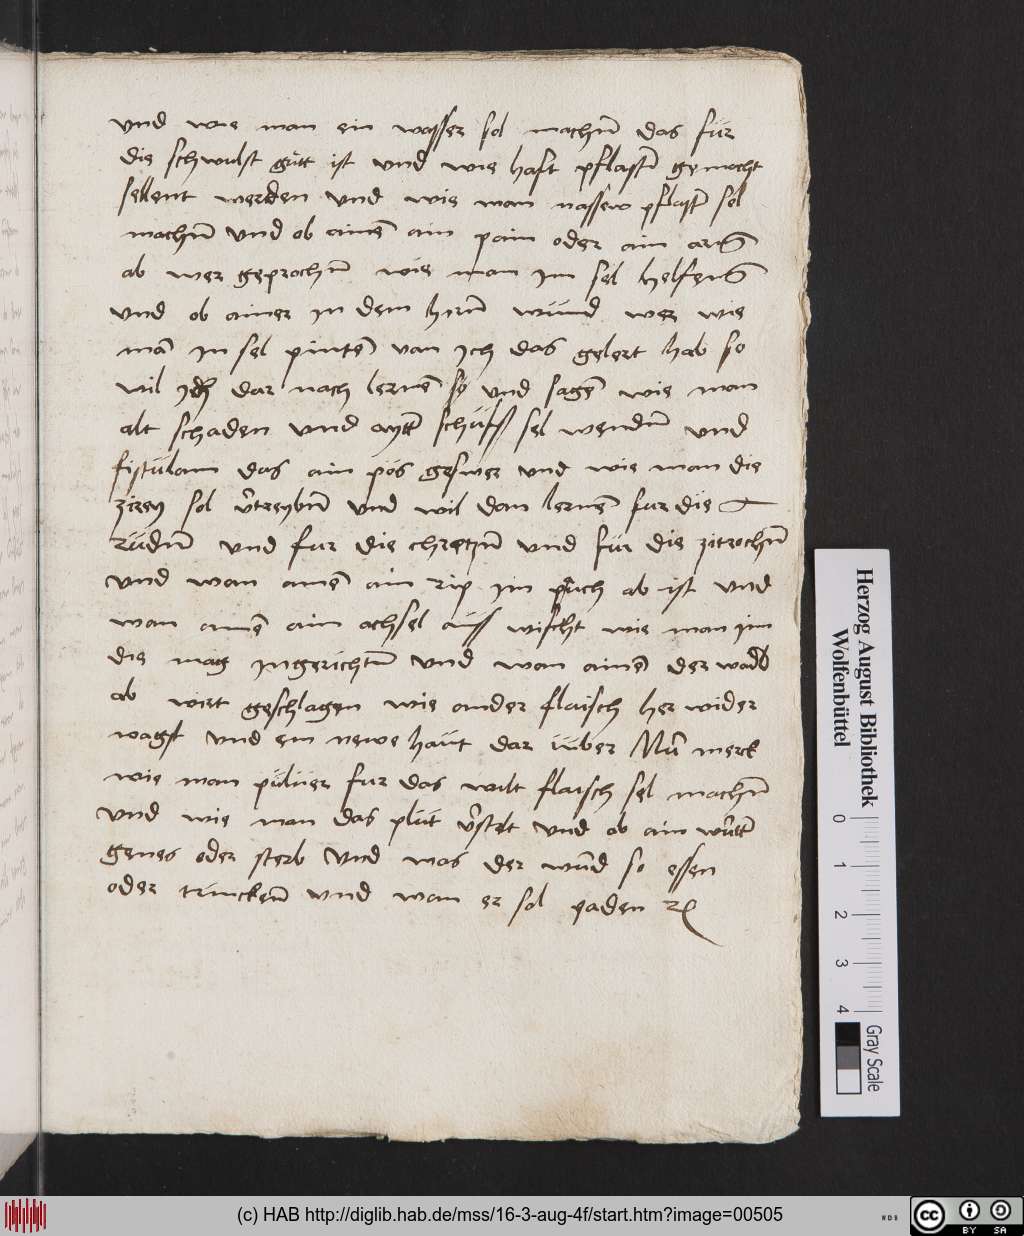 und wie man ein wasser sol machn̄ das für
die schwulst gütt ist und wie haft pflastr̄ gemacht
sellent werden und wie man nassew pflastr̄ sol
machn̄ und ob aimē ain pain oder ain arm̄
ab wer geprochn̄ wie man im sel helfen̄
und ob ainer in dem hirn̄ wund wer wie
mā in sel pintē van ich das gelert hab so
wil ich dar nach lernē so und sagē wie man
alt schaden und aytt schüss sel wendn̄ und
fistulam das ain pös geswer und wie man die
ziren sol v̄treybn̄ und wil dan lernē fur die
rudn̄ und fur die chretzn̄ und für die zitrochn̄
und wan amē ain rip im pauch ab ist und
wan aimē ain achsel auss wischt wie man im
die mag ingerichtn̄ und wan ainē der wadl
ab wirt geschlagen wie ander flaisch her wider
wagst und ein newe haut dar uber Nū merck
wie man puluer fur das wilt flaisch sel machn̄
und wie man das plut v̄stelt und ob ain wūtt
genes oder sterb und was der wūd so essen
oder trincken̄ und wan er sol paden rc
Herzog August Bibliothek
Wolfenbüttel
0 1 2 3 4
Gray Scale
(c) HAB http://diglib.hab.de/mss/16-3-aug-4f/start.htm?image=00505
cc BY SA